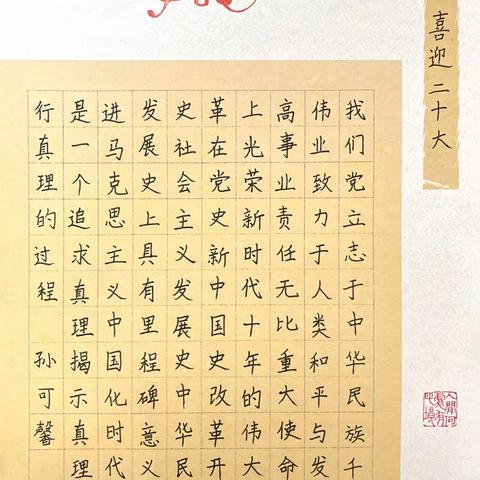 喜迎二十大
我们党立志于中华民族千
伟业致力于人类和平与发
高事业责任无比重大使命
上光荣新时代十年的伟大
革在党史新中国史改革开
史社会主义发展史中华民
发展史上具有里程碑意义
进马克思主义中国化时代
是一个追求真理揭示真理
行真理的过程 孙可馨